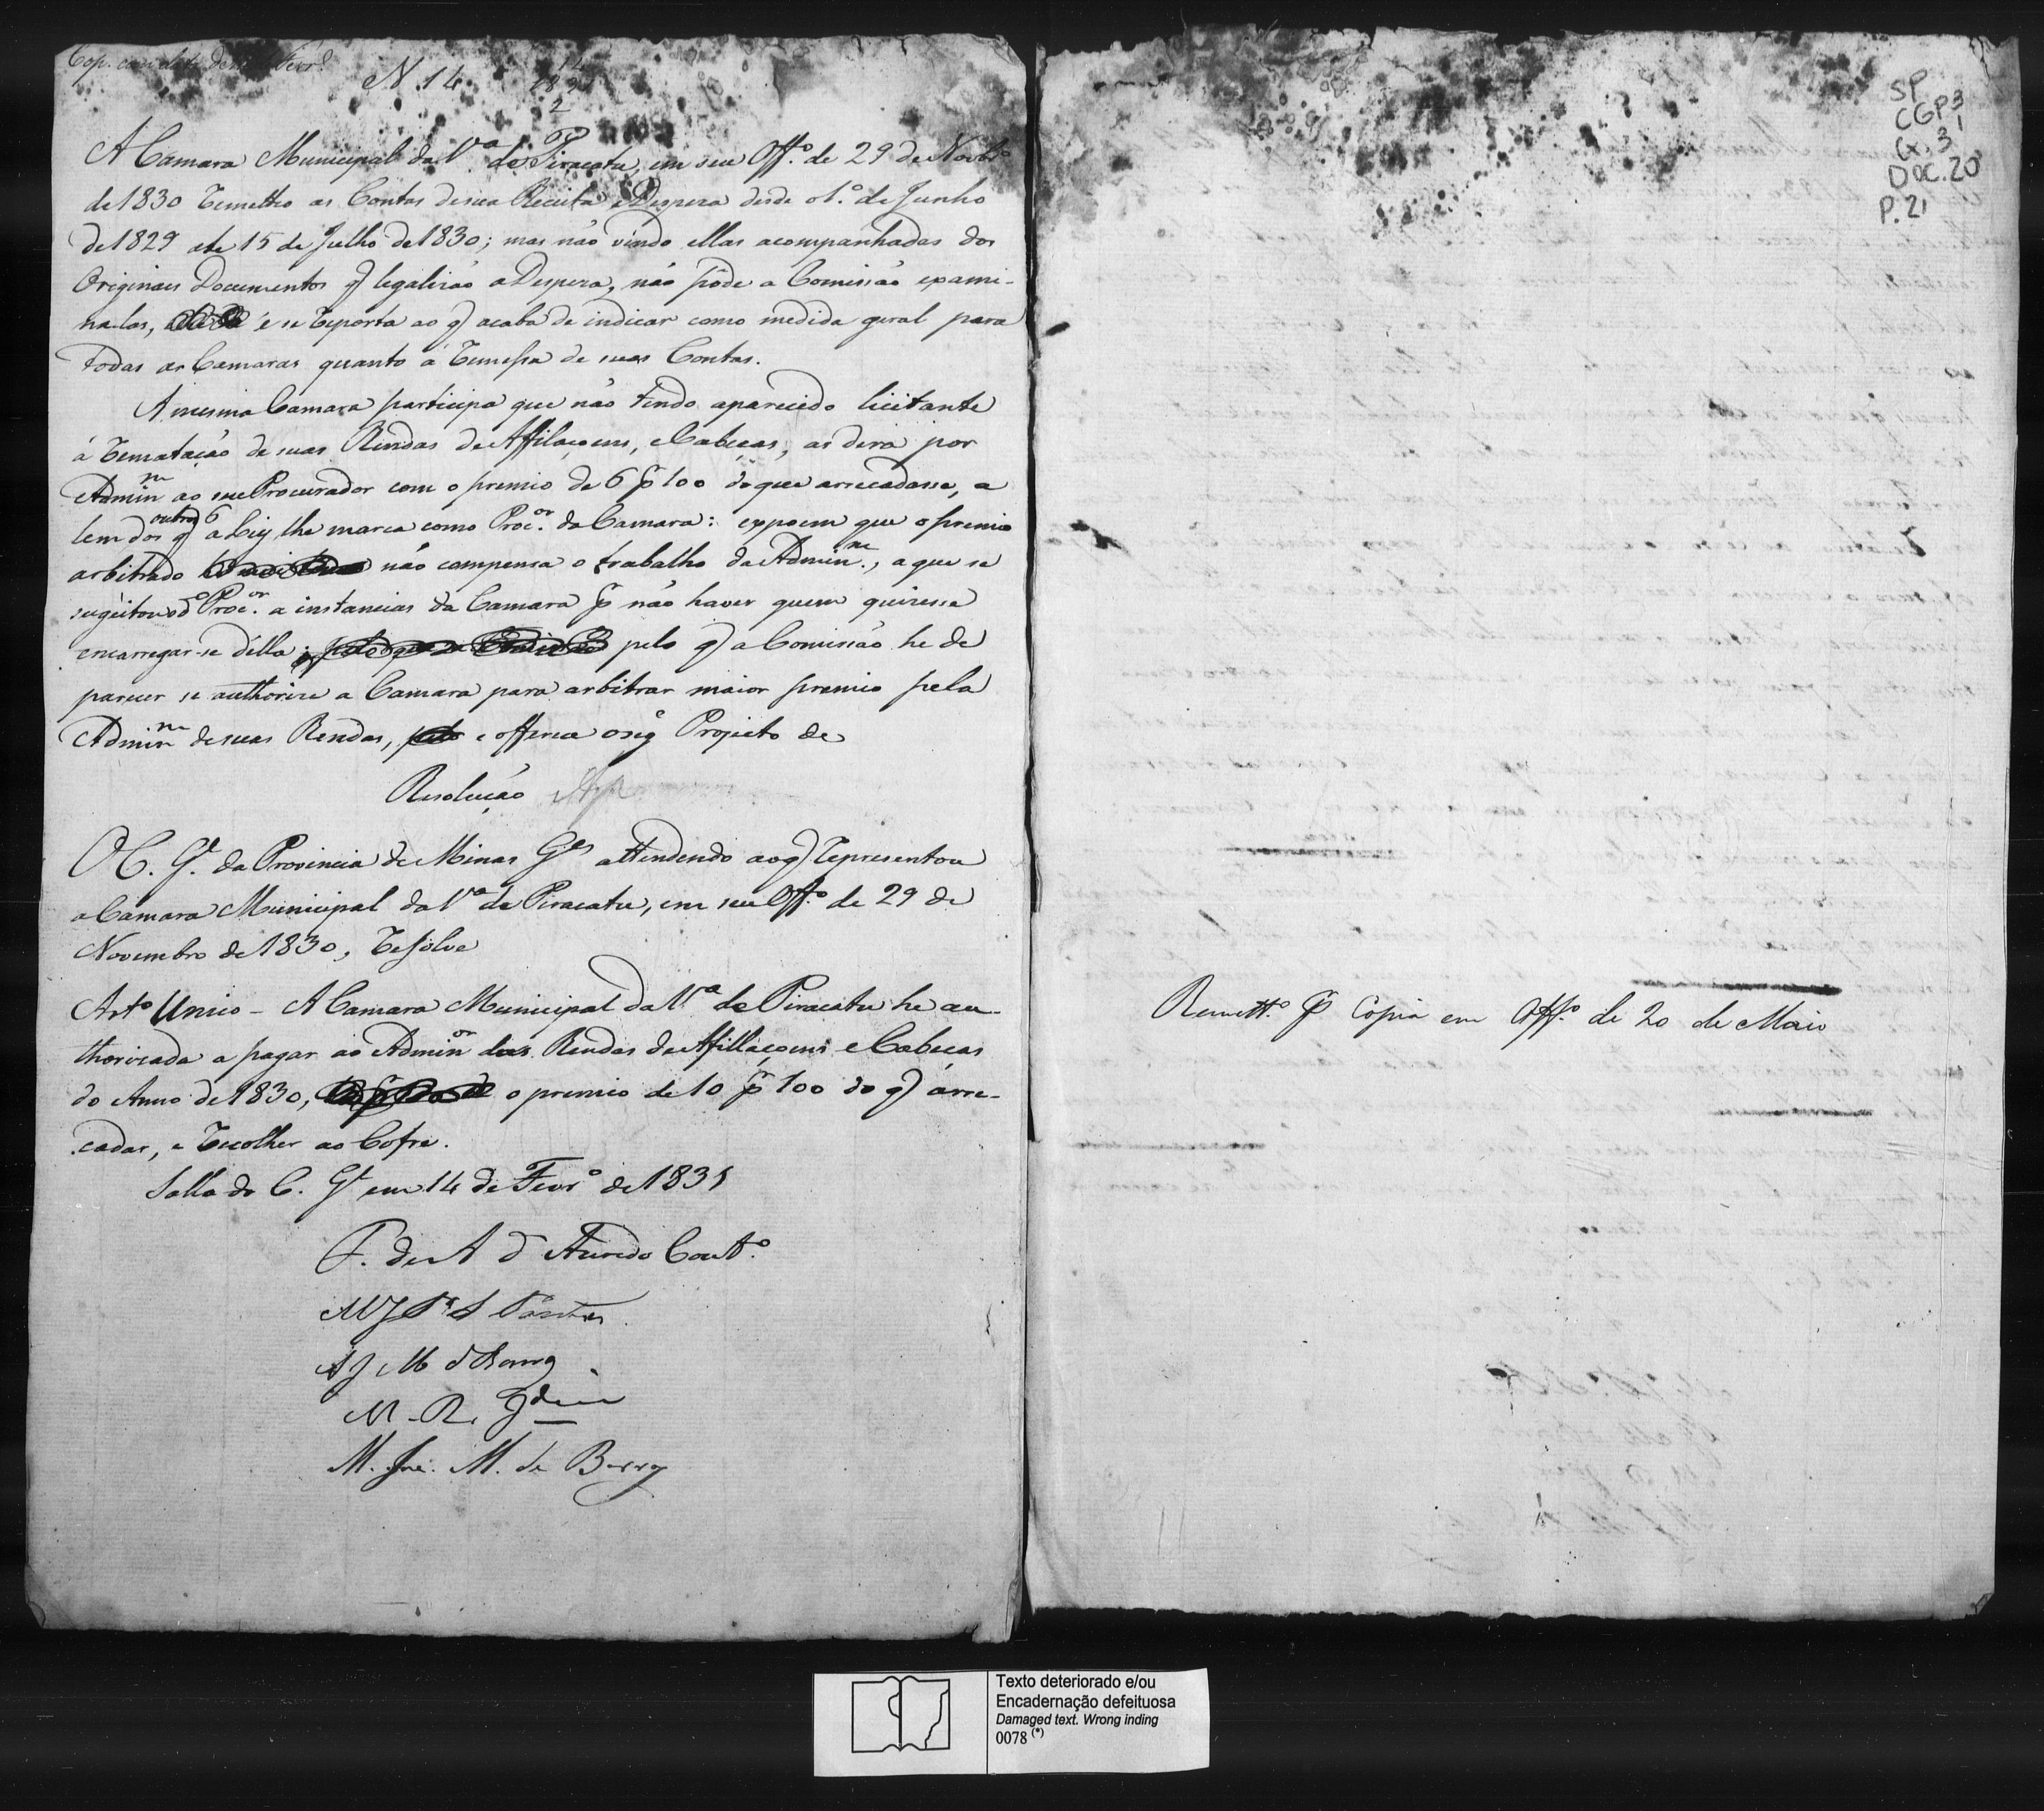 N. 14
A Camara Municipal da V.ª de Piracatu, em seu Off.º de 29 de Novbrº
de 1830 remetteo as Contas de sua Receita e Despeza desde o 1.º de Junho
de 1829 até 15 de Julho de 1830; mas não vindo ellas acompanhadas dos
Originais Documentos q̃ legalizão a Despeza, não pôde a Comissão exami-
nalas, e se reporta ao q̃ acaba de indicar como medida geral para
todas as Camaras quanto á remessa de suas Contas.
A mesma Camara participa que não tendo aparecido licitante
á rematação de suas Rendas de Affilaçoens, e Cabeças, as dera por
Admin^m ao seu Procurador com o premio de 6 p͂r 100 do que arrecadasse, a
lem dos outros 6 q̃ a Ley lhe marca como Proc.or da Camara: expoem que o premio
arbitrado não compensa o trabalho da Admin.m, a que se
sugeitou o dº Proc.or a instancias da Camara p͂r não haver quem quizesse
encarregar-se della; pelo q̃ a Comissão he de
parecer se authorize a Camara para arbitrar maior premio pela
Admin^m de suas Rendas, e offerece o seg^e Projecto de
Resolução
O C. G.l da Provincia de Minas G.es attendendo ao q̃ representou
a Camara Municipal da V.ª de Piracatu, em seu Off.º de 29 de
Novembro de 1830, resolve
Art.º Unico - A Camara Municipal da V.ª de Piracatu he au-
thorizada a pagar ao Admin^or das Rendas de Afillaçoens e Cabeças
do Anno de 1830, o premio de 10 p͂r 100 do q̃ arre-
cadar, e recolher ao Cofre.
Salla do C. G.l em 14 de Fevr.º de 1831
F. de A d'Azeredo Cout.º
M. R. Jdim
M. Ine. M. de
SP
CGP31
Cx. 3
DOC. 20
P. 21
Remett.º p͂r Copia em Off.º de 20 de Maio
Texto deteriorado e/ou
Encadernação defeituosa
Damaged text. Wrong inding
0078 (*)